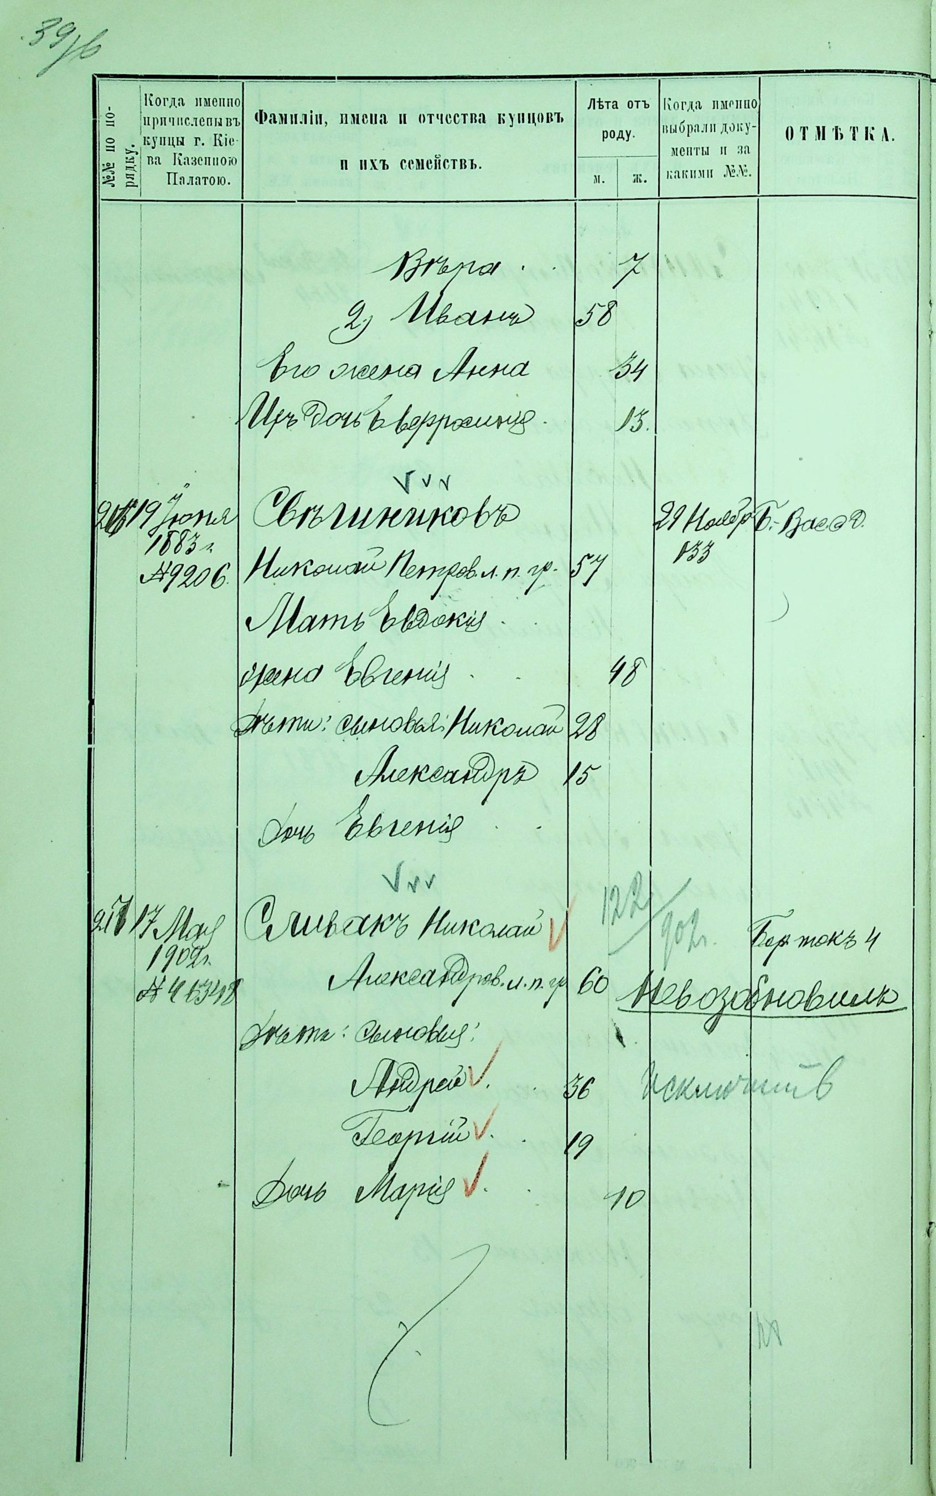 №№ по порядку.
Когда именно причислены въ купцы г. Кіева Казенною Палатою.
Фамиліи, имена и отчества купцовъ и ихъ семействъ.
Лѣта отъ роду.
м.
ж.
Когда именно выбрали документы и за какими №№.
ОТМѢТКА.
Вѣра 7
2) Иванъ 58
Его жена Анна 34
Ихъ дочь Евфросинія 13.
19 Іюня Свѣшниковъ 29 Ноябр
1883 г. 833
№9206 Николай Петров. л. п. гр. 57
Мать Евдокія
жена Евгенія 48
Дѣти: сыновья: Николай 28
Александръ 15
Дочь Евгенія
17 Мая Спивакъ Николай 122/902 г.
1902 г.
№ 41348 Александров. л. п. гр 60 Невозобновилъ
Дѣти: сыновья:
Андрей 36 Исключить
Георгій 19
Дочь Марія 10